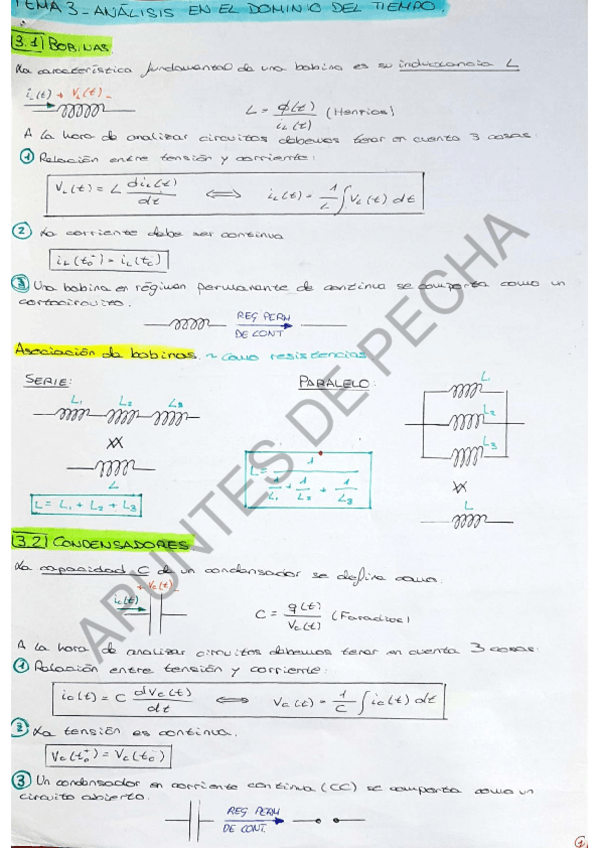 TEMA 3 - ANÁLISIS EN EL DOMINIO DEL TIEMPO.
3.1) BOBINAS
La característica fundamental de una bobina es su inductancia L
iL(t) + VL(t) -
L = ϕ(t) / iL(t) (Henrios)
A la hora de analizar circuitos debemos tener en cuenta 3 cosas:
① Relación entre tensión y corriente:
VL(t) = L diL(t)/dt ⟺ iL(t) = 1/L ∫ VL(t) dt
② La corriente debe ser continua
iL(t0-) = iL(t0)
③ Una bobina en régimen permanente de continua se comporta como un
cortocircuito.
REG PERM
DE CONT
Asociación de bobinas ~ como resistencias
SERIE:
PARALELO:
L1 L2 L3
L
L = L1 + L2 + L3
L = 1 / (1/L1 + 1/L2 + 1/L3)
L1
L2
L3
L
3.2) CONDENSADORES
La capacidad C de un condensador se define como:
+ Vc(t) -
ic(t)
C = q(t) / Vc(t) (Faradios)
A la hora de analizar circuitos debemos tener en cuenta 3 cosas:
① Relación entre tensión y corriente:
ic(t) = C dVc(t)/dt ⟺ Vc(t) = 1/C ∫ ic(t) dt
② La tensión es continua.
Vc(t0+) = Vc(t0-)
③ Un condensador en corriente continua (CC) se comporta como un
circuito abierto.
REG PERM
DE CONT.
1
APUNTES DE PECHA